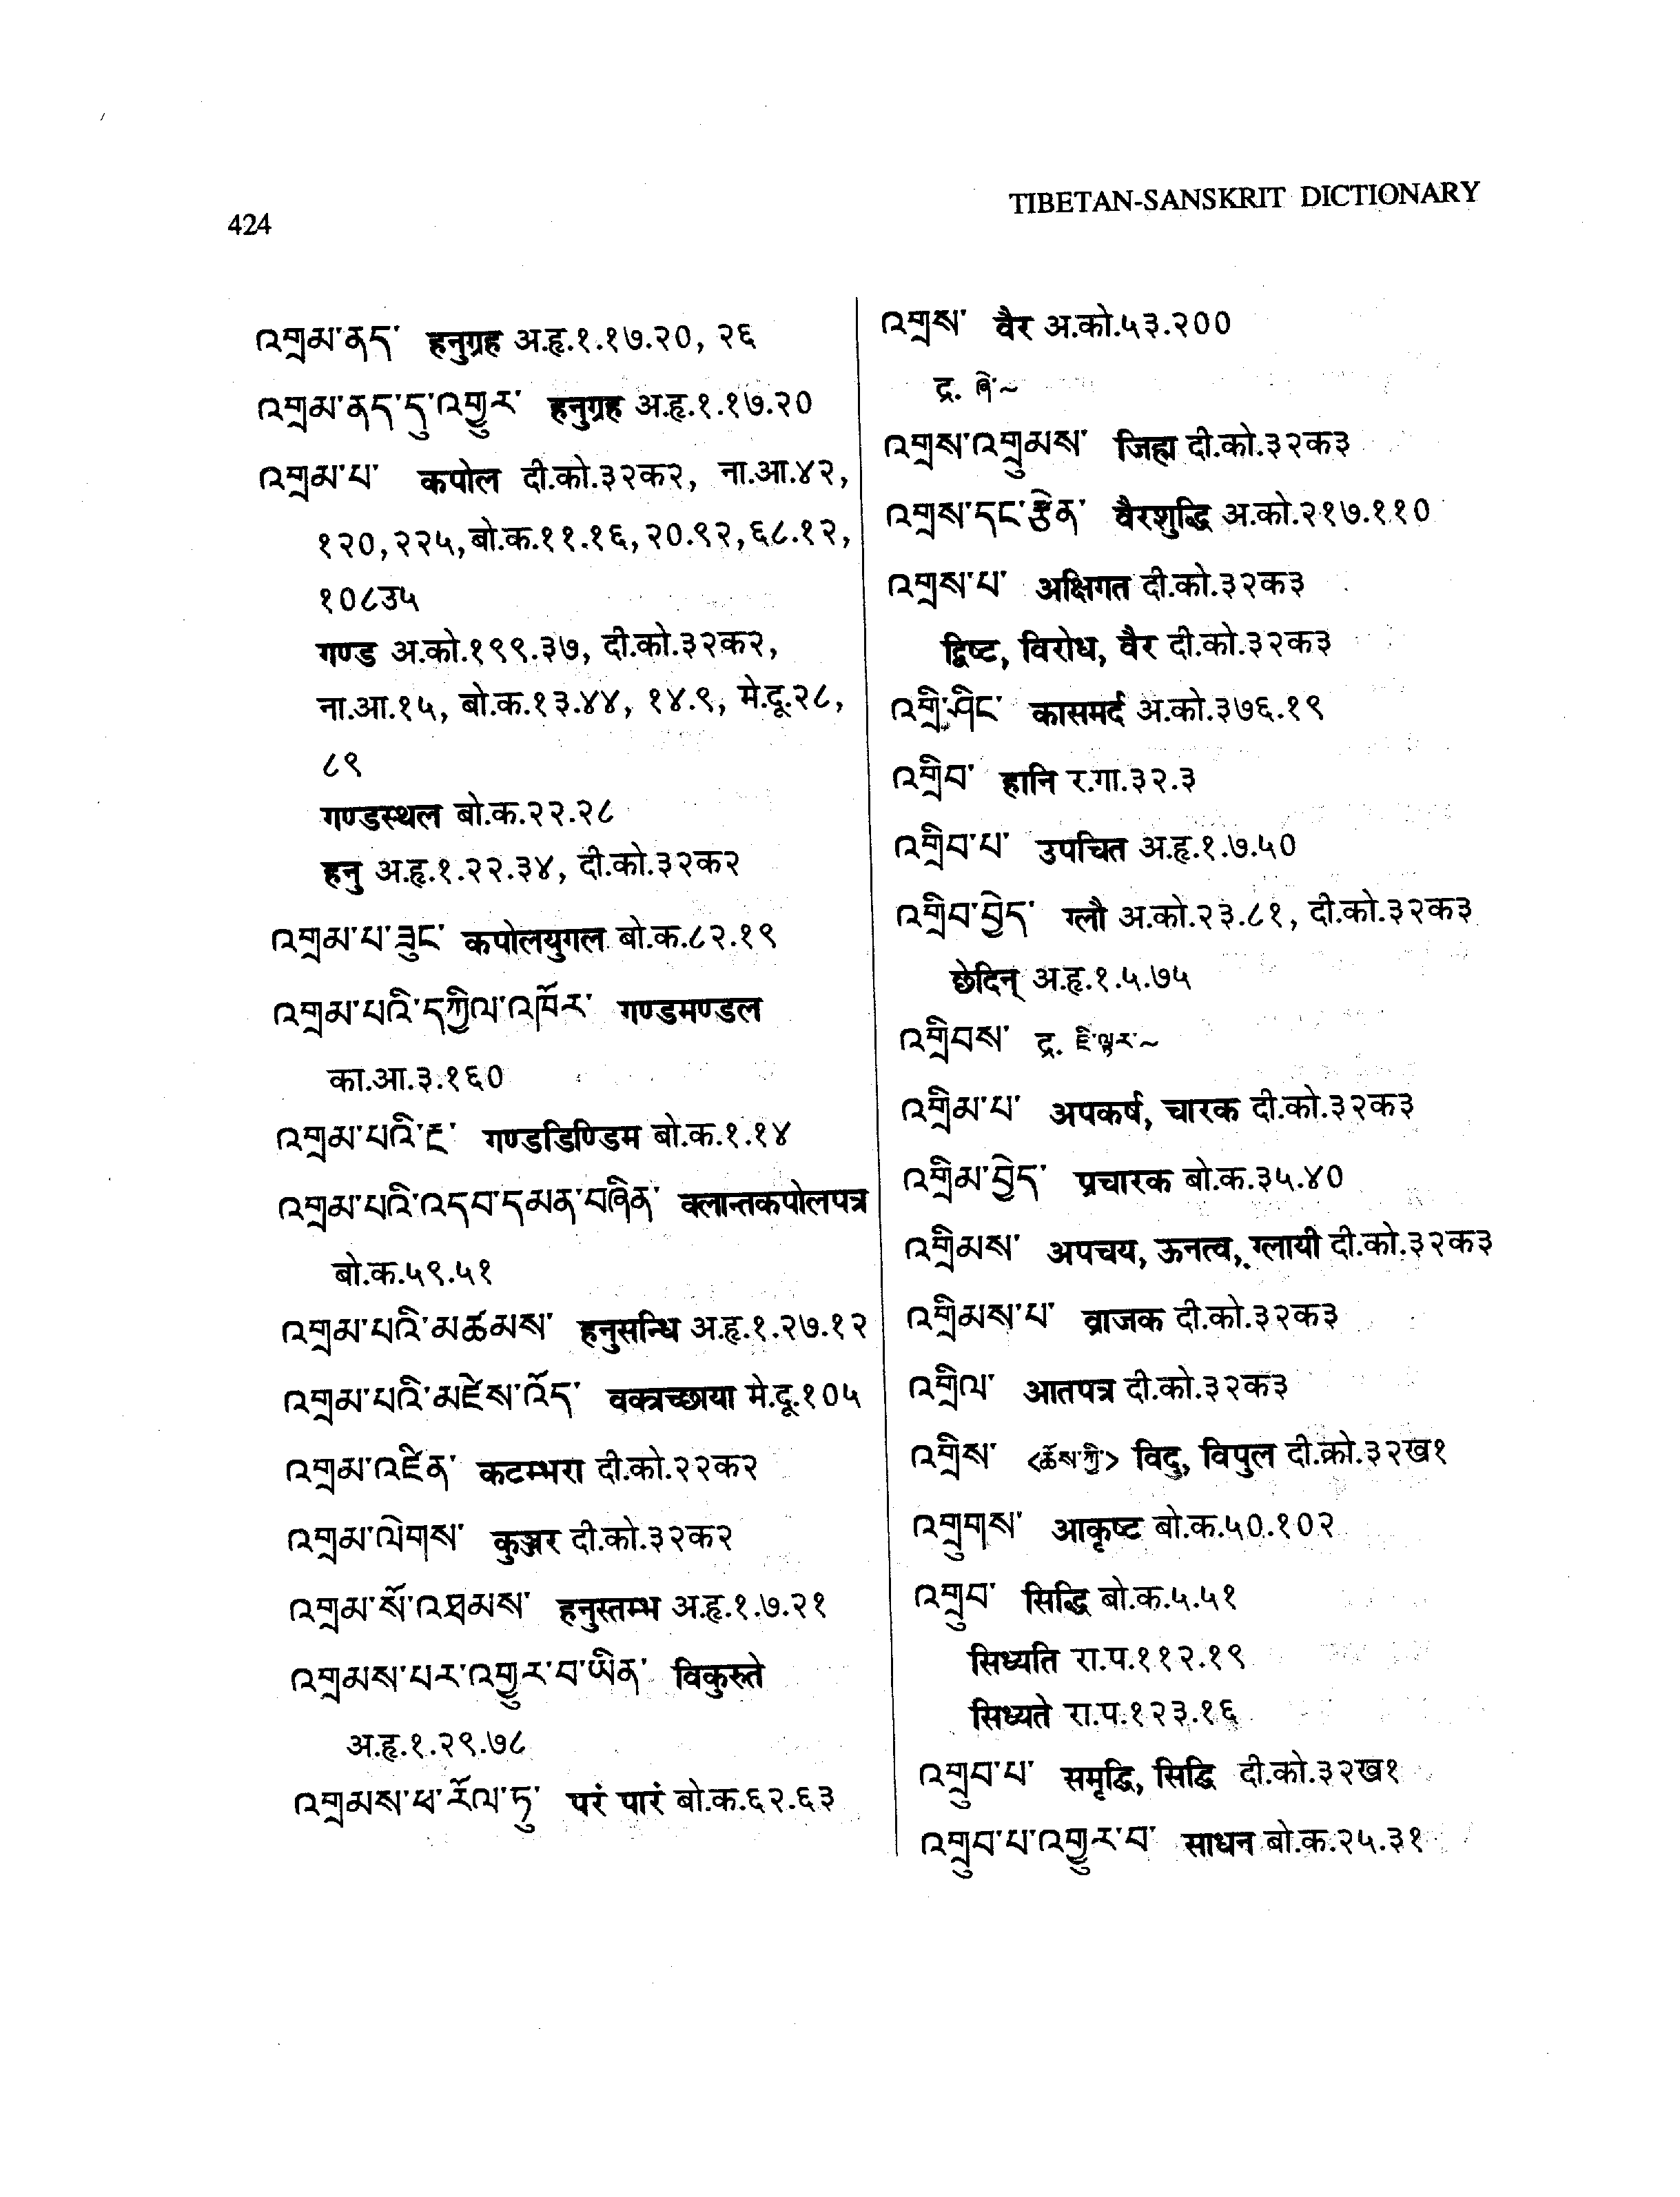 424
TIBETAN-SANSKRIT DICTIONARY
འགྲམ་ནད་ हनुग्रह अ.हृ.१.१७.२०, २६
འགྲམ་ནད་དུ་འགྱུར་ हनुग्रह अ.हृ.१.१७.२०
འགྲམ་པ་ कपोल दी.को.३२क२, ना.आ.४२,
१२०,२२५,बो.क.११.१६,२०.९२,६८.१२,
१०८उ५
गण्ड अ.को.१९९.३७, दी.को.३२क२,
ना.आ.१५, बो.क.१३.४४, १४.९, मे.दू.२८,
८९
गण्डस्थल बो.क.२२.२८
हनु अ.हृ.१.२२.३४, दी.को.३२क२
འགྲམ་པ་ཟུང་ कपोलयुगल बो.क.८२.१९
འགྲམ་པའི་དཀྱིལ་འཁོར་ गण्डमण्डल
का.आ.३.१६०
འགྲམ་པའི་རྔ་ गण्डडिण्डिम बो.क.१.१४
འགྲམ་པའི་འདབ་དམན་བཞིན་ क्लान्तकपोलपत्र
बो.क.५९.५१
འགྲམ་པའི་མཚམས་ हनुसन्धि अ.हृ.१.२७.१२
འགྲམ་པའི་མཛེས་འོད་ वक्त्रच्छाया मे.दू.१०५
འགྲམ་འཛིན་ कटम्भरा दी.को.२२क२
འགྲམ་ལེགས་ कुञ्जर दी.को.३२क२
འགྲམ་སོ་འཐམས་ हनुस्तम्भ अ.हृ.१.७.२१
འགྲམས་པར་འགྱུར་བ་ཡིན་ विकुरुते
अ.हृ.१.२९.७८
འགྲམས་ཕ་རོལ་ཏུ་ परं पारं बो.क.६२.६३
འགྲས་ वैर अ.को.५३.२००
द्र. ཞེ་~
འགྲས་འགྲུམས་ जिह्म दी.को.३२क३
འགྲས་དང་རྩེན་ वैरशुद्धि अ.को.२१७.११०
འགྲས་པ་ अक्षिगत दी.को.३२क३
द्विष्ट, विरोध, वैर दी.को.३२क३
འགྲི་ཤིང་ कासमर्द अ.को.३७६.१९
འགྲིབ་ हानि र.गा.३२.३
འགྲིབ་པ་ उपचित अ.हृ.१.७.५०
འགྲིབ་བྱེད་ ग्लौ अ.को.२३.८१, दी.को.३२क३
छेदिन् अ.हृ.१.५.७५
འགྲིབས་ द्र. ཇི་ལྟར་~
འགྲིམ་པ་ अपकर्ष, चारक दी.को.३२क३
འགྲིམ་བྱེད་ प्रचारक बो.क.३५.४०
འགྲིམས་ अपचय, ऊनत्व, ग्लायी दी.को.३२क३
འགྲིམས་པ་ व्राजक दी.को.३२क३
འགྲིལ་ आतपत्र दी.को.३२क३
འགྲིས་ <ཆོས་ཀྱི་> विदु, विपुल दी.को.३२ख१
འགྲུགས་ आकृष्ट बो.क.५०.१०२
འགྲུབ་ सिद्धि बो.क.५.५१
सिध्यति रा.प.११२.१९
सिध्यते रा.प.१२३.१६
འགྲུབ་པ་ समृद्धि, सिद्धि दी.को.३२ख१
འགྲུབ་པ་འགྱུར་བ་ साधन बो.क.२५.३१